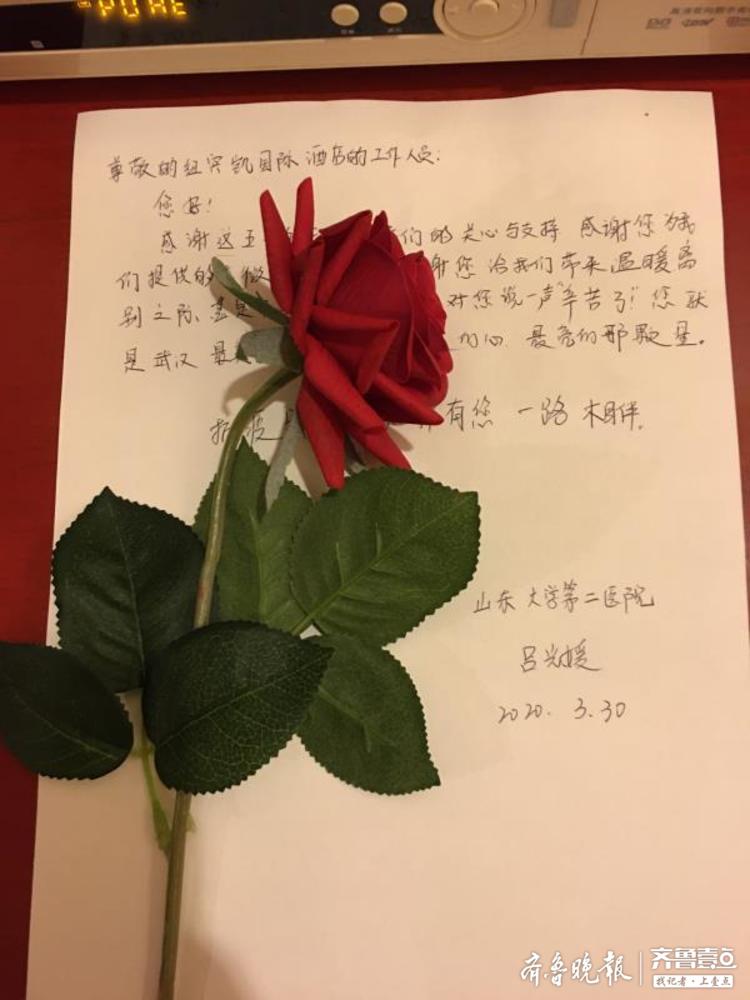 PURE
高清双向数字有
DVB
尊敬的纽宾凯国际酒店的工作人员：
您好！
感谢这五 们的关心与支持 感谢您为我
们提供的 谢您给我们带来温暖离
别之际、 对您说一声“辛苦了！”您就
是武汉最 心最亮的那颗星。
抗疫 有您一路相伴.
山东大学第二医院
吕兴媛
2020. 3.30
齐鲁晚报
齐鲁壹点
找记者·上壹点